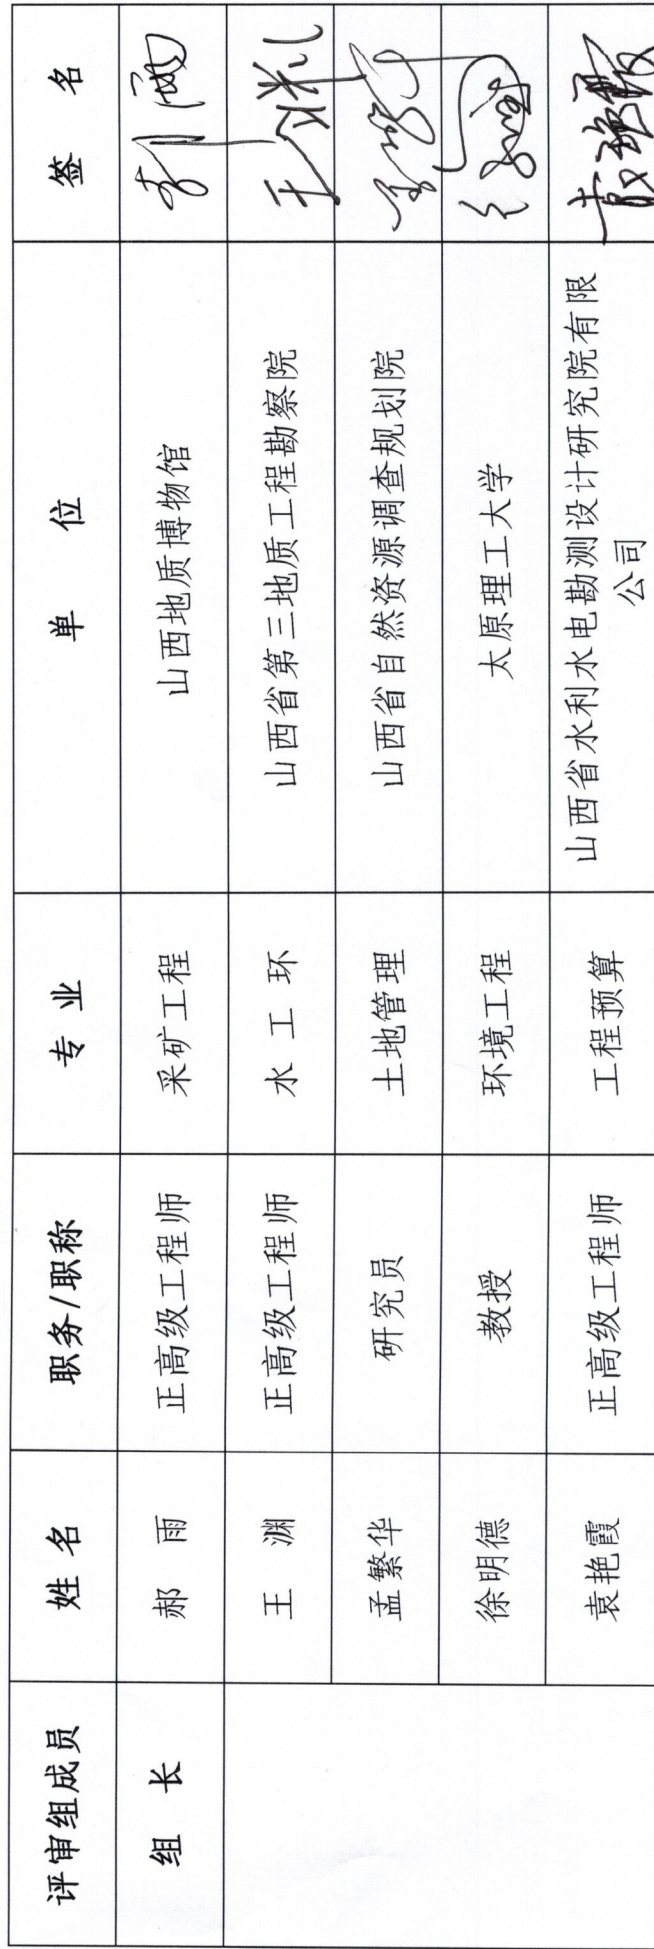 评审组成员 姓名 职务/职称 专业 单位 签名
组长 郝雨 正高级工程师 采矿工程 山西地质博物馆
王渊 正高级工程师 水工环 山西省第三地质工程勘察院
孟繁华 研究员 土地管理 山西省自然资源调查规划院
徐明德 教授 环境工程 太原理工大学
袁艳霞 正高级工程师 工程预算 山西省水利水电勘测设计研究院有限
公司